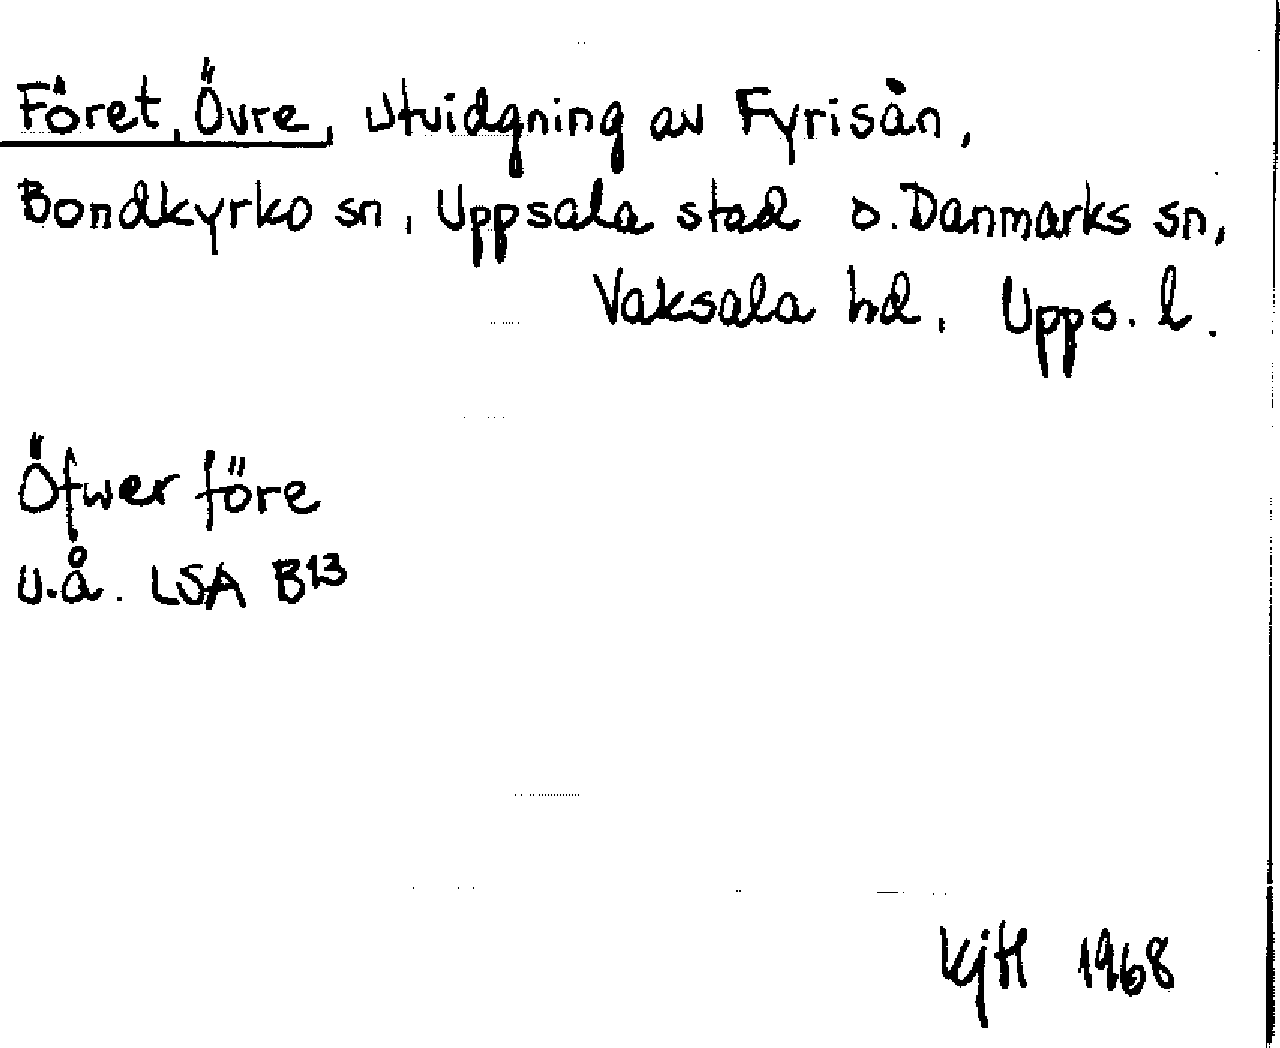 Föret, Övre, utvidgning av Fyrisån,
Bondkyrko sn, Uppsala stad o. Danmarks sn,
Vaksala hd, Upps. l.
Öfwer före
u.å. LSA B13
KjH 1968